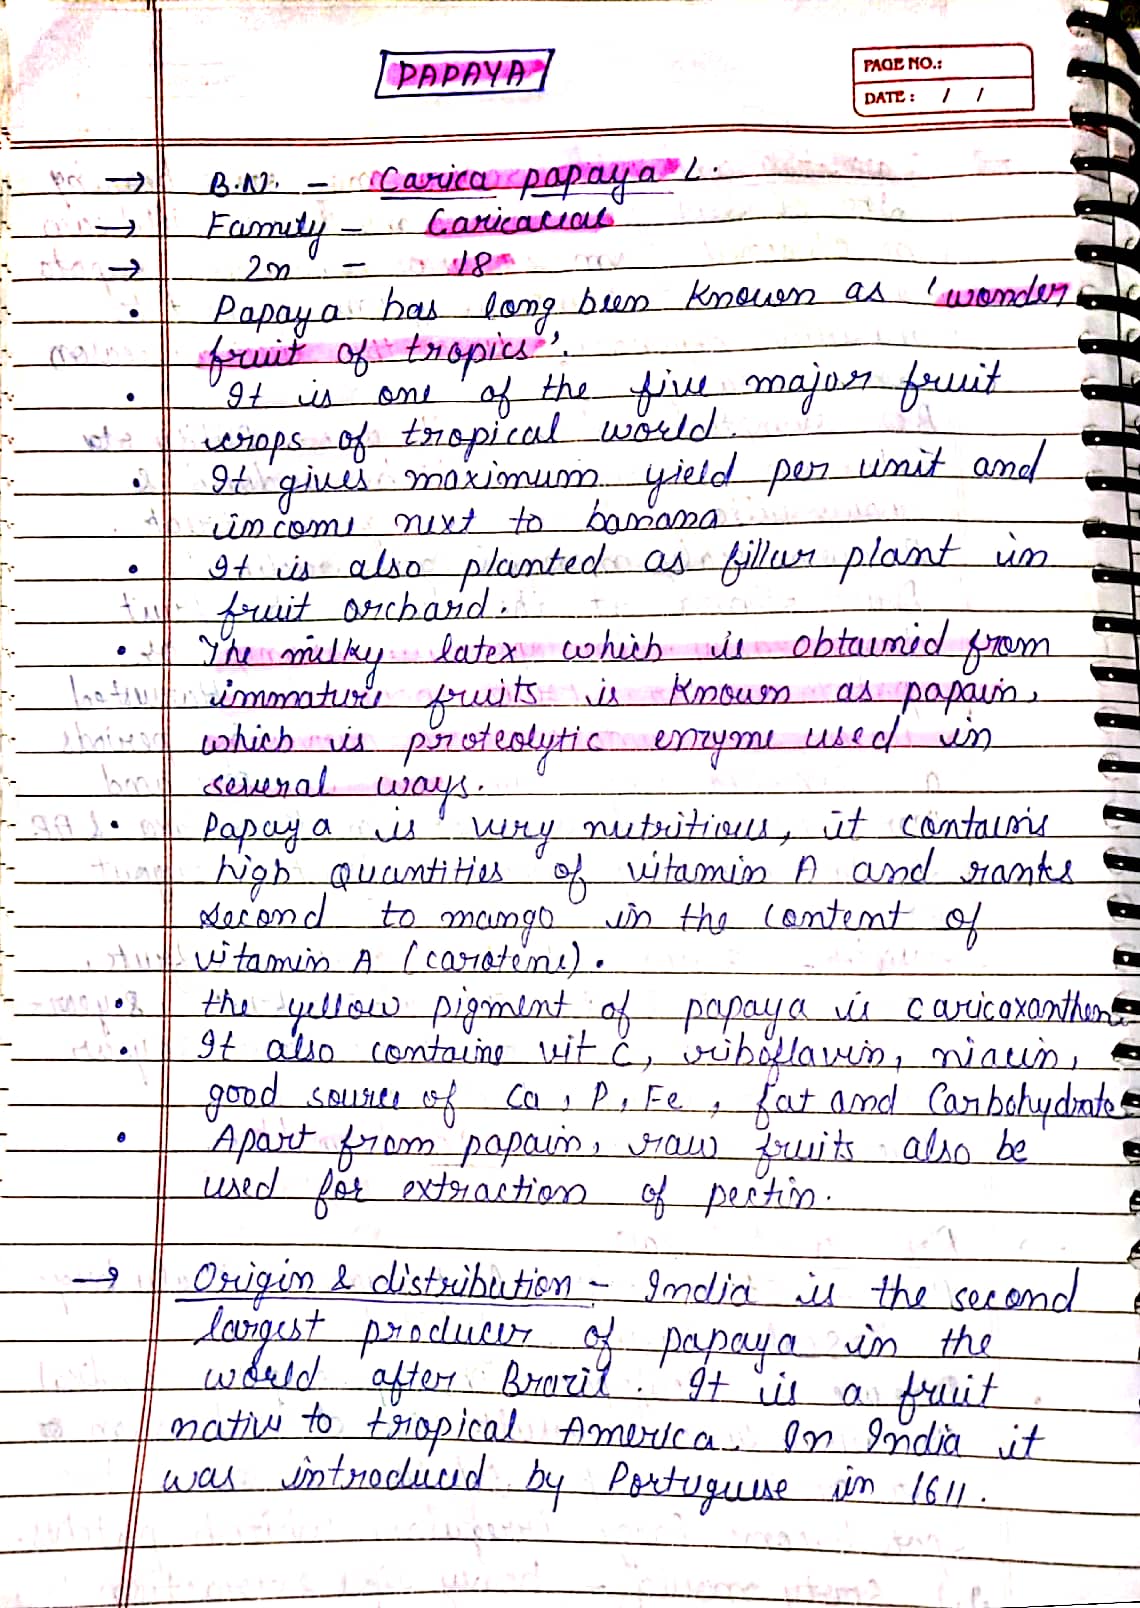 PAPAYA
PAGE NO.:
DATE: / /
→ B.N. - Carica papaya L.
→ Family - Caricaceae
→ 2n - 18
• Papaya has long been known as 'wonder
fruit of tropics'.
• It is one of the five major fruit
crops of tropical world.
• It gives maximum yield per unit and
income next to banana
• It is also planted as filler plant in
fruit orchard.
• The milky latex which is obtained from
immature fruits is known as papain,
which is proteolytic enzyme used in
several ways.
• Papaya is very nutritious, it contains
high quantities of vitamin A and ranks
second to mango in the content of
vitamin A (carotene).
• the yellow pigment of papaya is caricaxanthen.
• It also contains vit C, riboflavin, niacin,
good source of Ca, P, Fe, fat and Carbohydrate
• Apart from papain, raw fruits also be
used for extraction of pectin.
→ Origin & distribution - India is the second
largest producer of papaya in the
world after Brazil. It is a fruit
native to tropical America. In India it
was introduced by Portuguese in 1611.